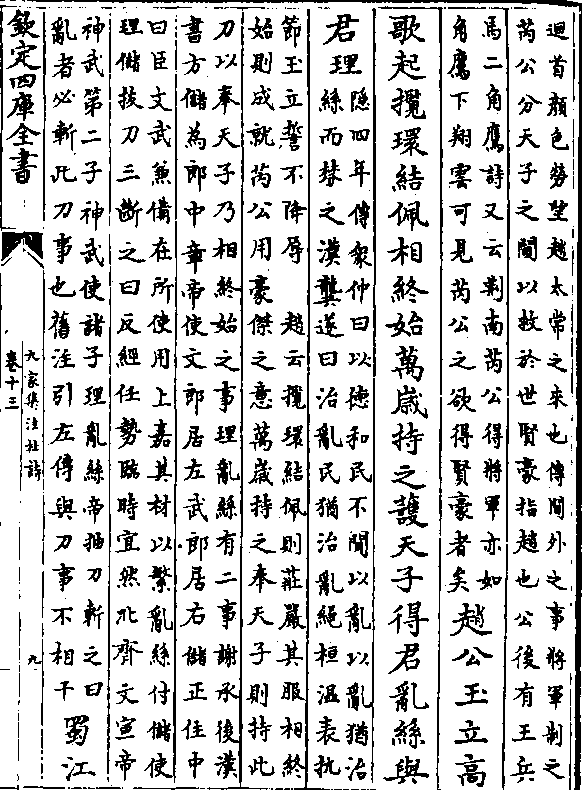 迴首顔色勞望趙太常之來也傳閫外之事將軍制之
芮公分天子之閫以救於世賢豪指趙也公後有王兵
馬二角鷹詩又云荆南芮公得將軍亦如
角鷹下翔雲可見芮公之欲得賢豪者矣趙公玉立高
歌起攬環結佩相終始萬歳持之護天子得君亂絲與
君理隱四年傳衆仲曰以徳和民不聞以亂以亂猶治
絲而棼之漢龔遂曰治亂民猶治亂繩桓温表抗
節玉立誓不降辱 趙云攬環結佩則莊嚴其服相終
始則成就芮公用豪傑之意萬歳持之奉天子則持此
刀以奉天子乃相終始之事理亂絲有二事謝承後漢
書方儲為郎中章帝使文郎居左武郎居右儲正住中
曰臣文武兼備在所使用上嘉其材以繁亂絲付儲使
理儲拔刀三斷之曰反經任勢臨時宜然北齊文宣帝
神武第二子神武使諸子理亂絲帝抽刀斬之曰
亂者必斬此刀事也舊注引左傳與刀事不相干 蜀江
欽定四庫全書
九家集注杜詩
卷十三
九